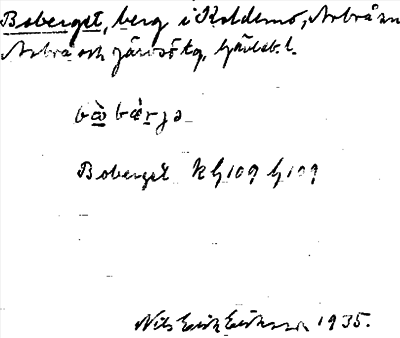 Boberget, berg i Koldemo, Arbrå sn
Arbrå och Järvsö tg, Gävleb. l.
bɷ̀ bæ̀rjə
Boberget k G 109 G 109
Nils Erik Eriksson 1935.